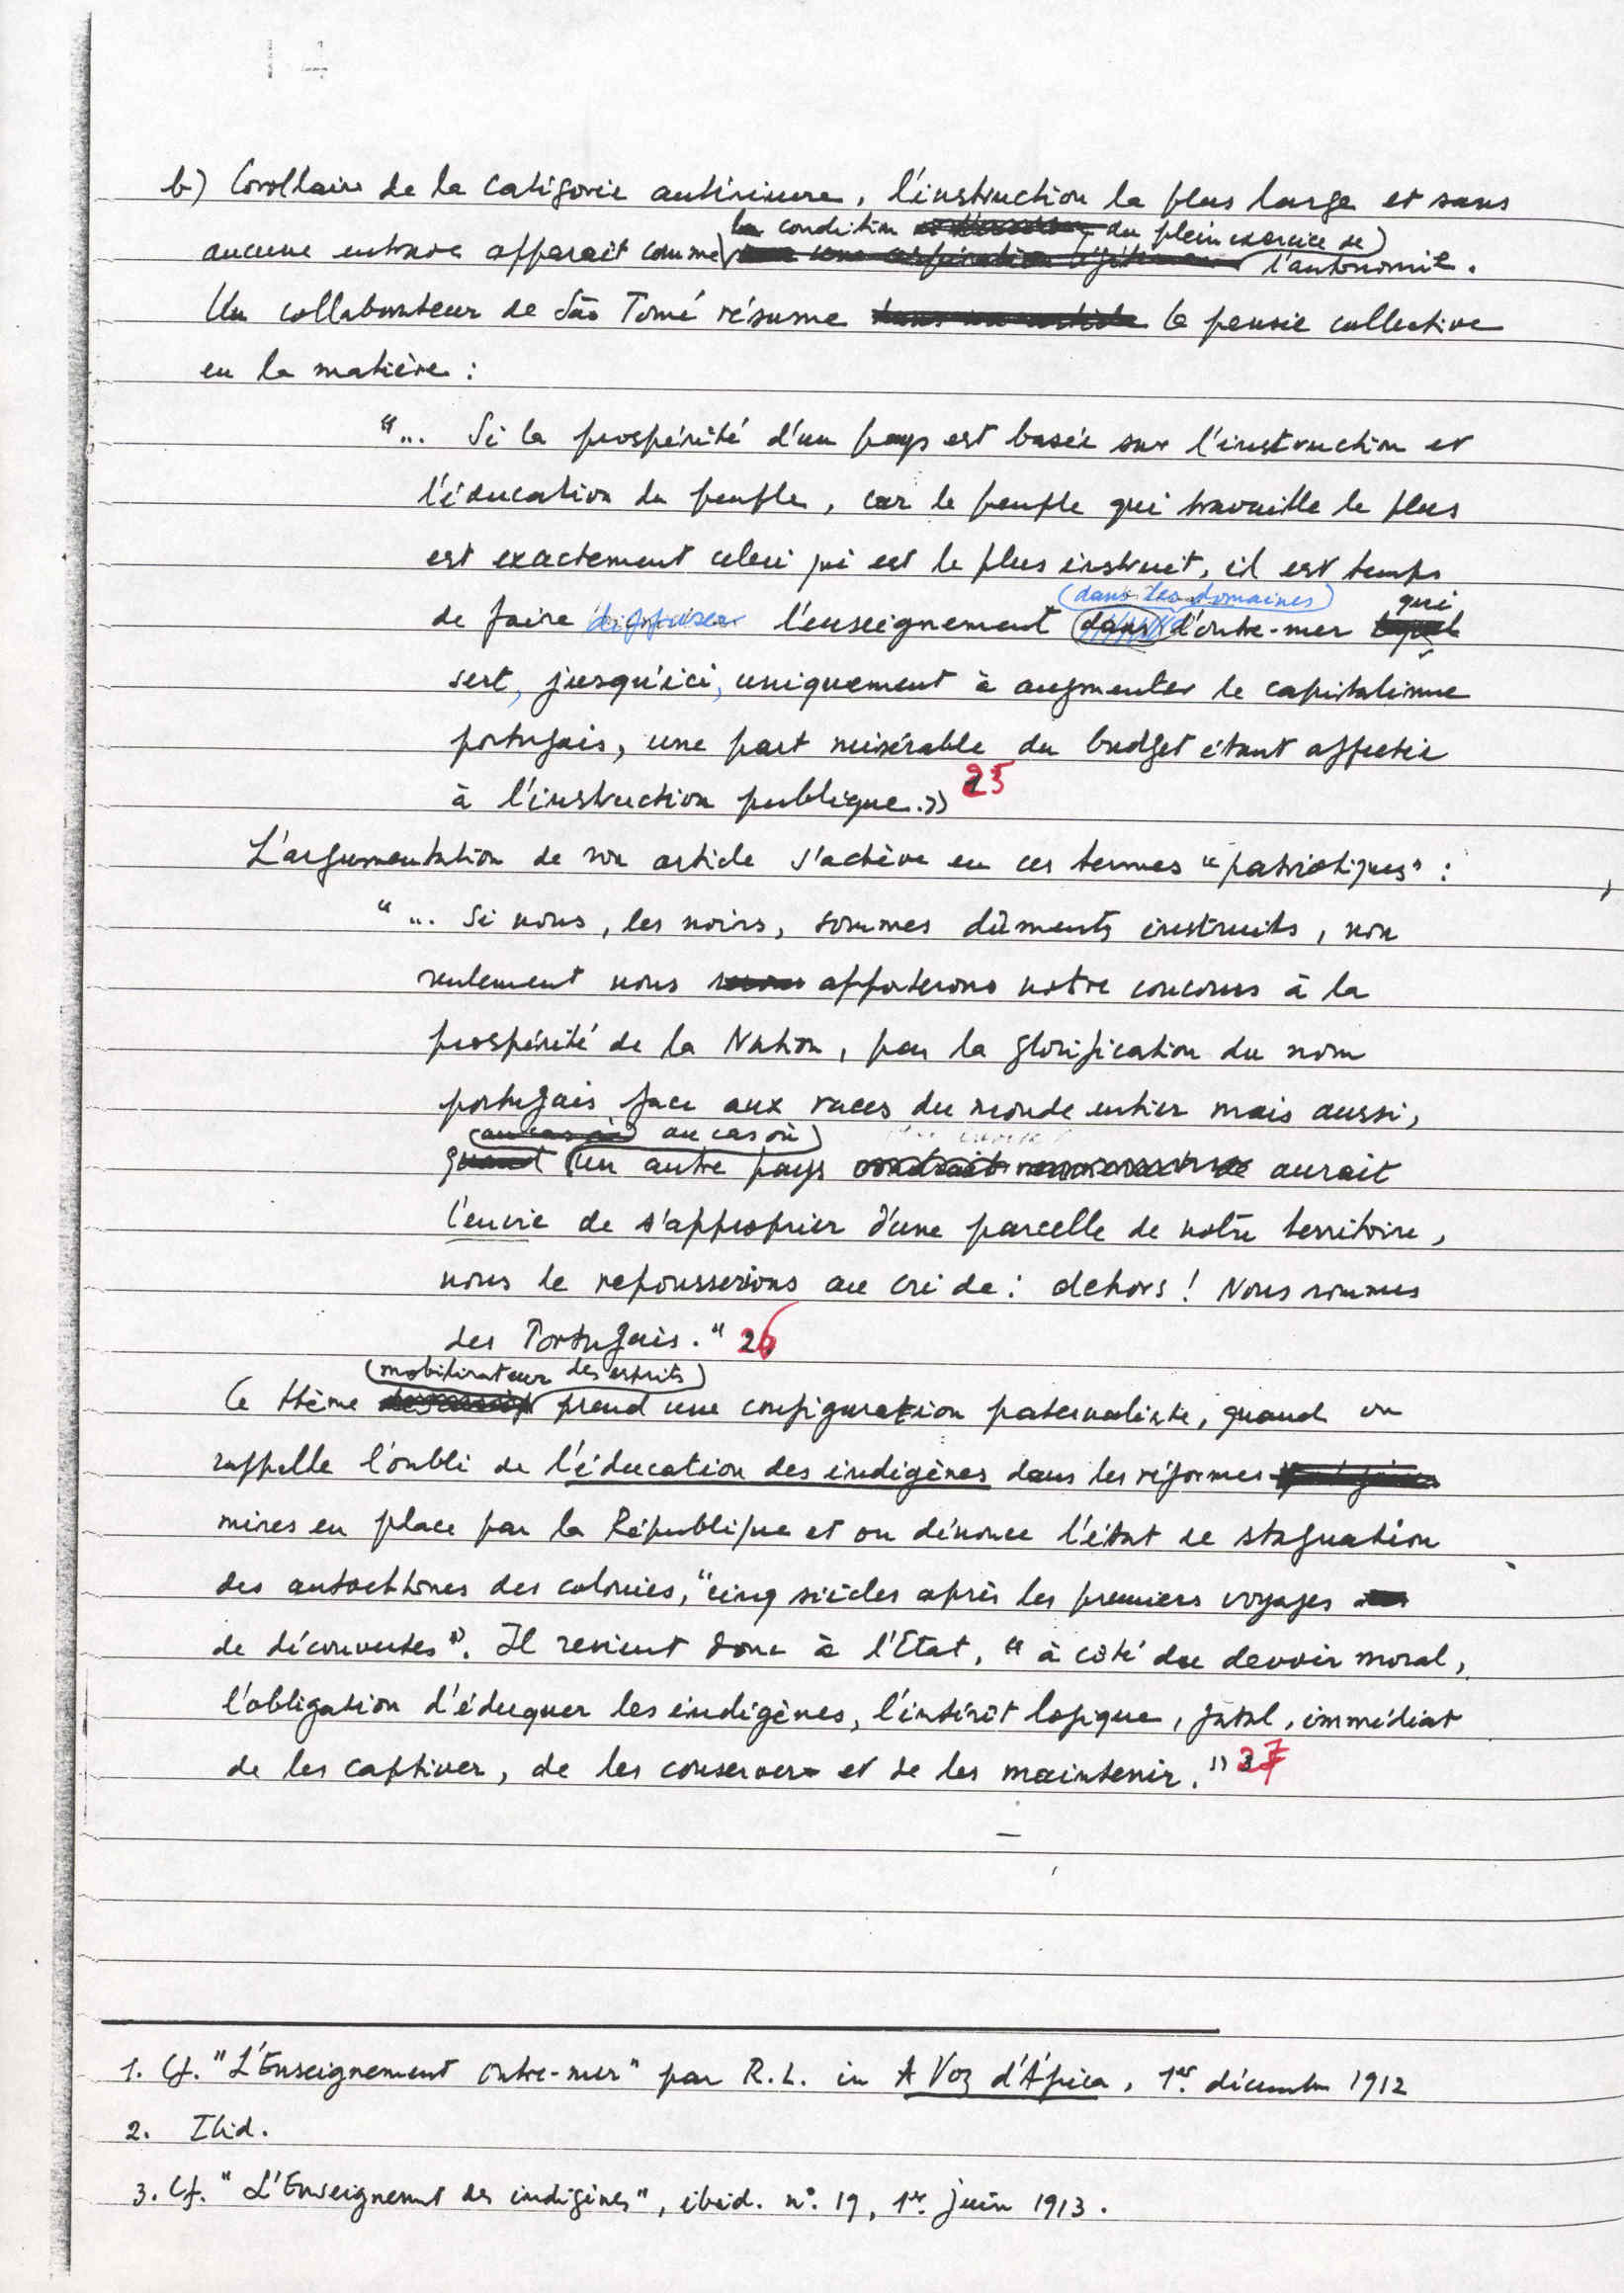 14
b) Corollaire de la catégorie antérieure, l'instruction la plus large et sans
la condition du plein exercice de
aucune entrave apparait comme l'autonomie.
Un collaborateur de São Tomé résume la pensée collective
en la matière :
"... Si la prospérité d'un pays est basée sur l'instruction et
l'éducation du peuple, car le peuple qui travaille le plus
est exactement celui qui est le plus instruit, il est temps
(dans les domaines) qui
de faire diffuser l'enseignement dans d'outre-mer
sert, jusqu'ici, uniquement à augmenter le capitalisme
portugais, une part misérable du budget étant affectée
à l'instruction publique.» 25
L'argumentation de son article s'achève en ces termes "patriotiques" :
"... Si nous, les noirs, sommes dûments instruits, non
seulement nous apporterons notre concours à la
prospérité de la Nation, par la glorification du nom
portugais face aux races du monde entier mais aussi,
au cas où au cas où
quand un autre pays aurait
l'envie de s'approprier d'une parcelle de notre territoire,
nous le repousserions au cri de : dehors ! Nous sommes
des Portugais." 26
(mobilisateur des esprits)
Ce thème prend une configuration paternaliste, quand on
rappelle l'oubli de l'éducation des indigènes dans les réformes
mises en place par la République et on dénonce l'état de stagnation
des autochtones des colonies, "cinq siècles après les premiers voyages
de découvertes". Il revient donc à l'Etat, "à côté du devoir moral,
l'obligation d'éduquer les indigènes, l'intérêt logique, fatal, immédiat
de les captiver, de les conserver et de les maintenir." 27
1. Cf. "L'Enseignement outre-mer" par R.L. in A Voz d'Africa, 1er. décembre 1912
2. Ibid.
3. Cf. "L'Enseignement des indigènes", ibid. n°. 19, 1er. juin 1913.